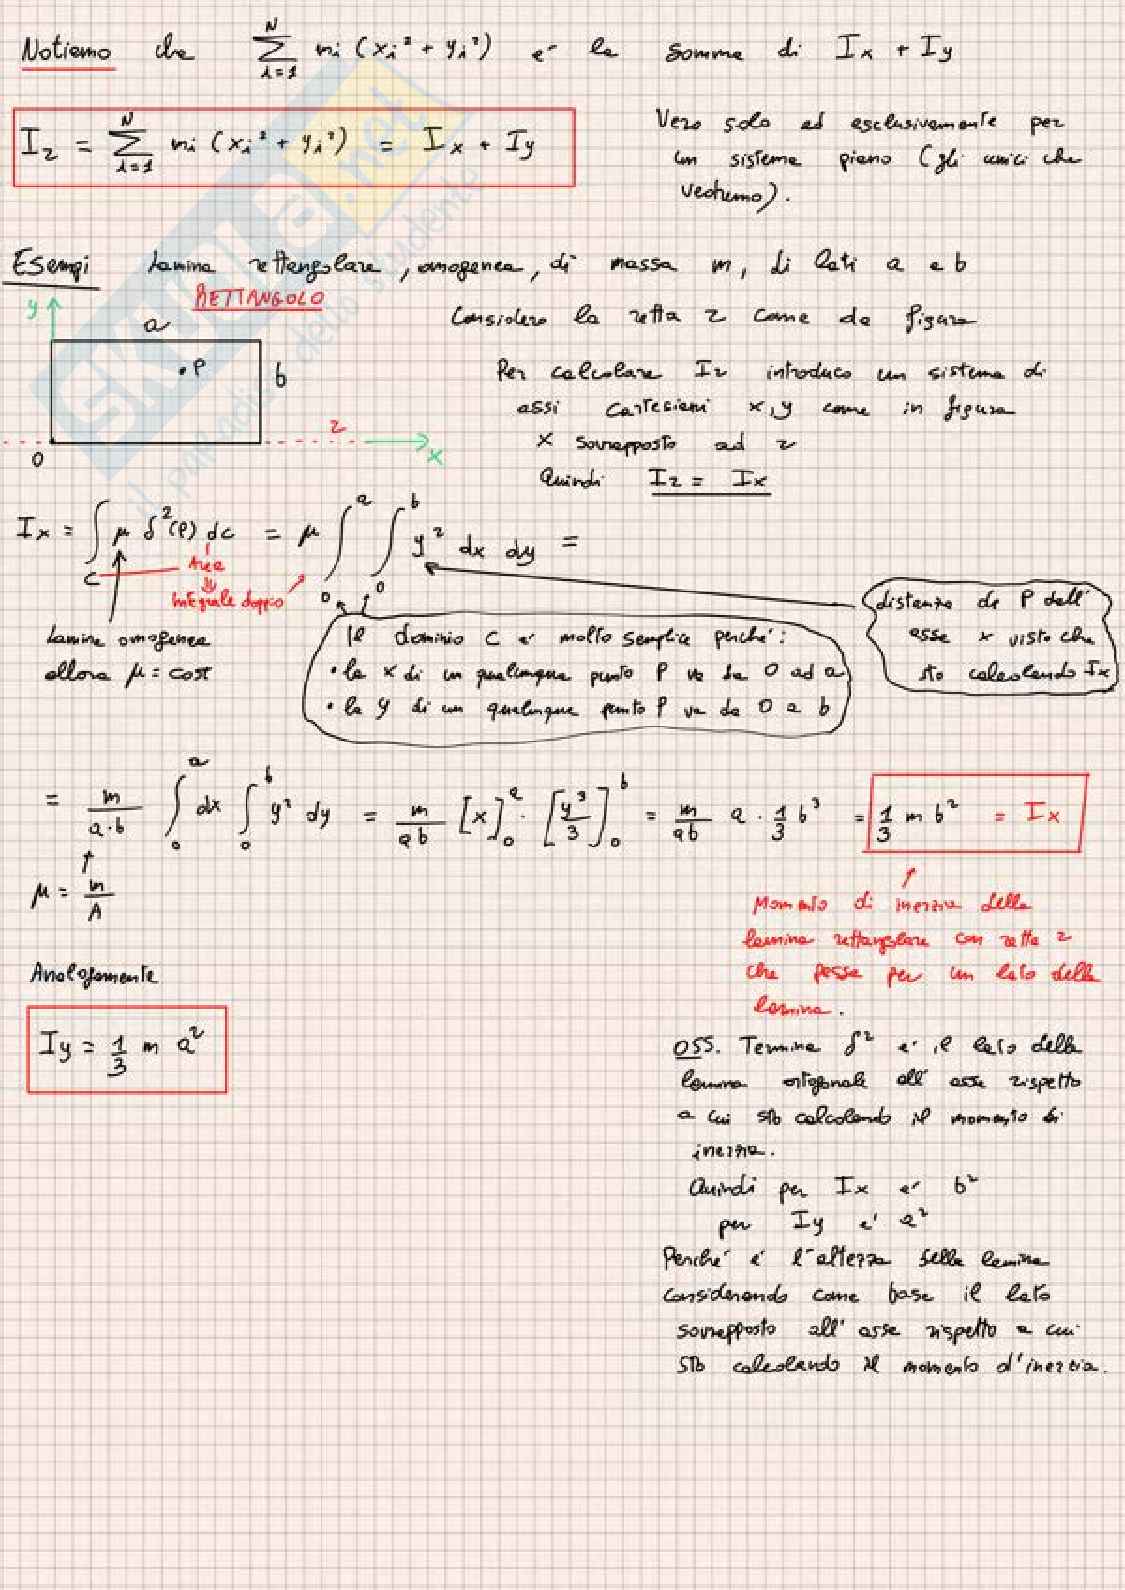 Notiamo che ∑_{i=1}^{N} mi (xi² + yi²) é la somma di Ix + Iy
Iz = ∑_{i=1}^{N} mi (xi² + yi²) = Ix + Iy
Vero solo ed esclusivamente per
un sistema piano (gli unici che
vedremo).
Esempi Lamina rettangolare, omogenea, di massa m, di lati a e b
RETTANGOLO
y
a
Considero la retta z come da figura
P
b
Per calcolare Iz introduco un sistema di
assi cartesiani x, y come in figura
z
x
0
x sovrapposto ad z
Quindi Iz = Ix
Ix = ∫_C μ δ²(P) dc = μ ∫_0^a ∫_0^b y² dx dy =
Area
⇓
integrale doppio
Lamina omogenea
allora μ = cost
Il dominio C é molto semplice perché:
• la x di un qualunque punto P va da 0 ad a
• la y di un qualunque punto P va da 0 a b
distanza di P dall'
asse x visto che
sto calcolando Ix
= m/(a·b) ∫_0^a dx ∫_0^b y² dy = m/(ab) [x]_0^a · [y³/3]_0^b = m/(ab) a · 1/3 b³ = 1/3 m b² = Ix
μ = m/A
Momento di inerzia della
lamina rettangolare con retta z
che passa per un lato della
lamina.
Analogamente
Iy = 1/3 m a²
OSS. Termine δ² é il lato della
lamina ortogonale all' asse rispetto
a cui sto calcolando il momento di
inerzia.
Quindi per Ix é b²
per Iy é a²
Perché é l'altezza della lamina
considerando come base il lato
sovrapposto all' asse rispetto a cui
sto calcolando il momento d'inerzia.
SKUOLA.net
il paradiso dello studente